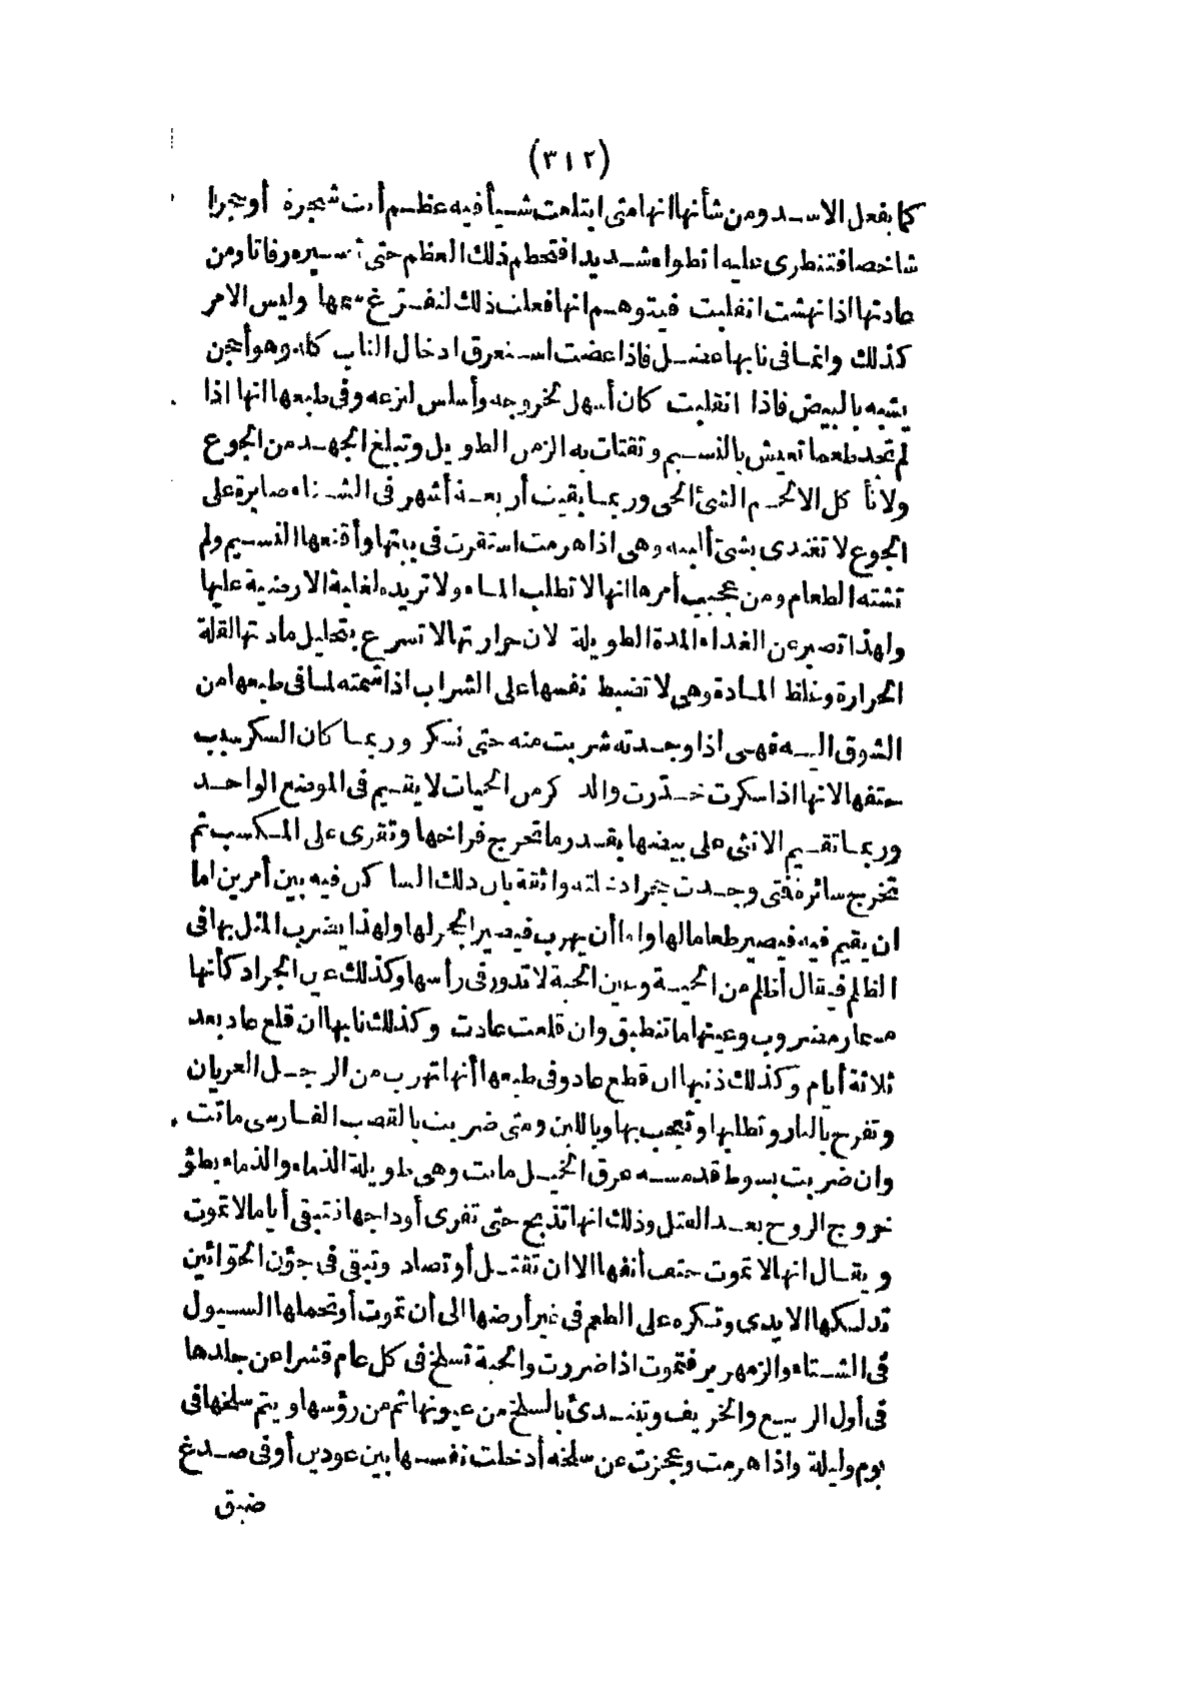 (٣١٢)
كما يفعل الاسد ومن شأنها انها متى ابتلعت شيأ فيه عظم أتت شجرة أو حجرا
شاخصا فتنطوى عليه انطواء شديدا فتحطم ذلك العظم حتى يصيره رفاتا ومن
عادتها اذا نهشت انقلبت فيتوهم انها فعلت ذلك لتفرغ سمها وليس الامر
كذلك وانما فى نابها عصل فاذا عضت استغرق ادخال الناب كله وهو أحجن
يشبه بالبيض فاذا انقلبت كان أسهل لخروجه وأسلس لنزعه وفى طبعها انها اذا
لم تجد طعما تعيش بالنسيم وتقتات به الزمن الطويل وتبلغ الجهد من الجوع
ولا تأكل الا لحم الشئ الحى وربما بقيت أربعة أشهر فى الشتاء صابرة على
الجوع لا تغتذى بشئ ألبته وهى اذا هرمت استقرت فى بيتها وأقنعها النسيم ولم
تشته الطعام ومن عجيب أمرها انها لا تطلب الماء ولا تريده لغلبة الارضية عليها
ولهذا تصبر عن الغذاء المدة الطويلة لان حرارتها لا تسرع بتحليل مادتها لقلة
الحرارة وغلظ المادة وهى لا تضبط نفسها على الشراب اذا شمته لما فى طبعها من
الشوق اليه فهى اذا وجدته شربت منه حتى تسكر وربما كان السكر سبب
حتفها لانها اذا سكرت خدرت والذكر من الحيات لا يقيم فى الموضع الواحد
وربما تقيم الانثى على بيضها بقدر ما تخرج فراخها وتقوى على المكسب ثم
تخرج سائرة فمتى وجدت جحرا دخلته واثقة بان ذلك الساكن فيه بين أمرين اما
ان يقيم فيه فيصير طعاما لها واما أن يهرب فيصير الجحر لها ولهذا يضرب المثل بها فى
الظلم فيقال أظلم من الحية وعين الحية لا تدور فى رأسها وكذلك عين الجراد كأنها
مسمار مضروب وعينها ما تنطبق وان قلعت عادت وكذلك نابها ان قلع عاد بعد
ثلاثة أيام وكذلك ذنبها ان قطع عاد وفى طبعها أنها تهرب من الرجل العريان
وتفرح بالنار وتطلبها وتعجب بها وباللبن ومتى ضربت بالقصب الفارسى ماتت
وان ضربت بسوط قد مسه عرق الخيل ماتت وهى طويلة الذماء والذماء بطؤ
خروج الروح بعد القتل وذلك انها تذبح حتى تفرى أوداجها فتبقى أياما لا تموت
ويقال انها لا تموت حتف أنفها الا ان تقتل أو تصاد وتبقى فى جؤن الحوائين
تدلكها الايدى وتكره على الطعم فى غير أرضها الى أن تموت أو تحملها السيول
فى الشتاء والزمهرير فتموت اذا ضررت والحية تسلخ فى كل عام قشرا من جلدها
فى أول الربيع والخريف وتبتدئ بالسلخ من عيونها ثم من رؤسها ويتم سلخها فى
يوم وليلة واذا هرمت وعجزت عن سلخه أدخلت نفسها بين عودين أو فى صدغ
ضيق